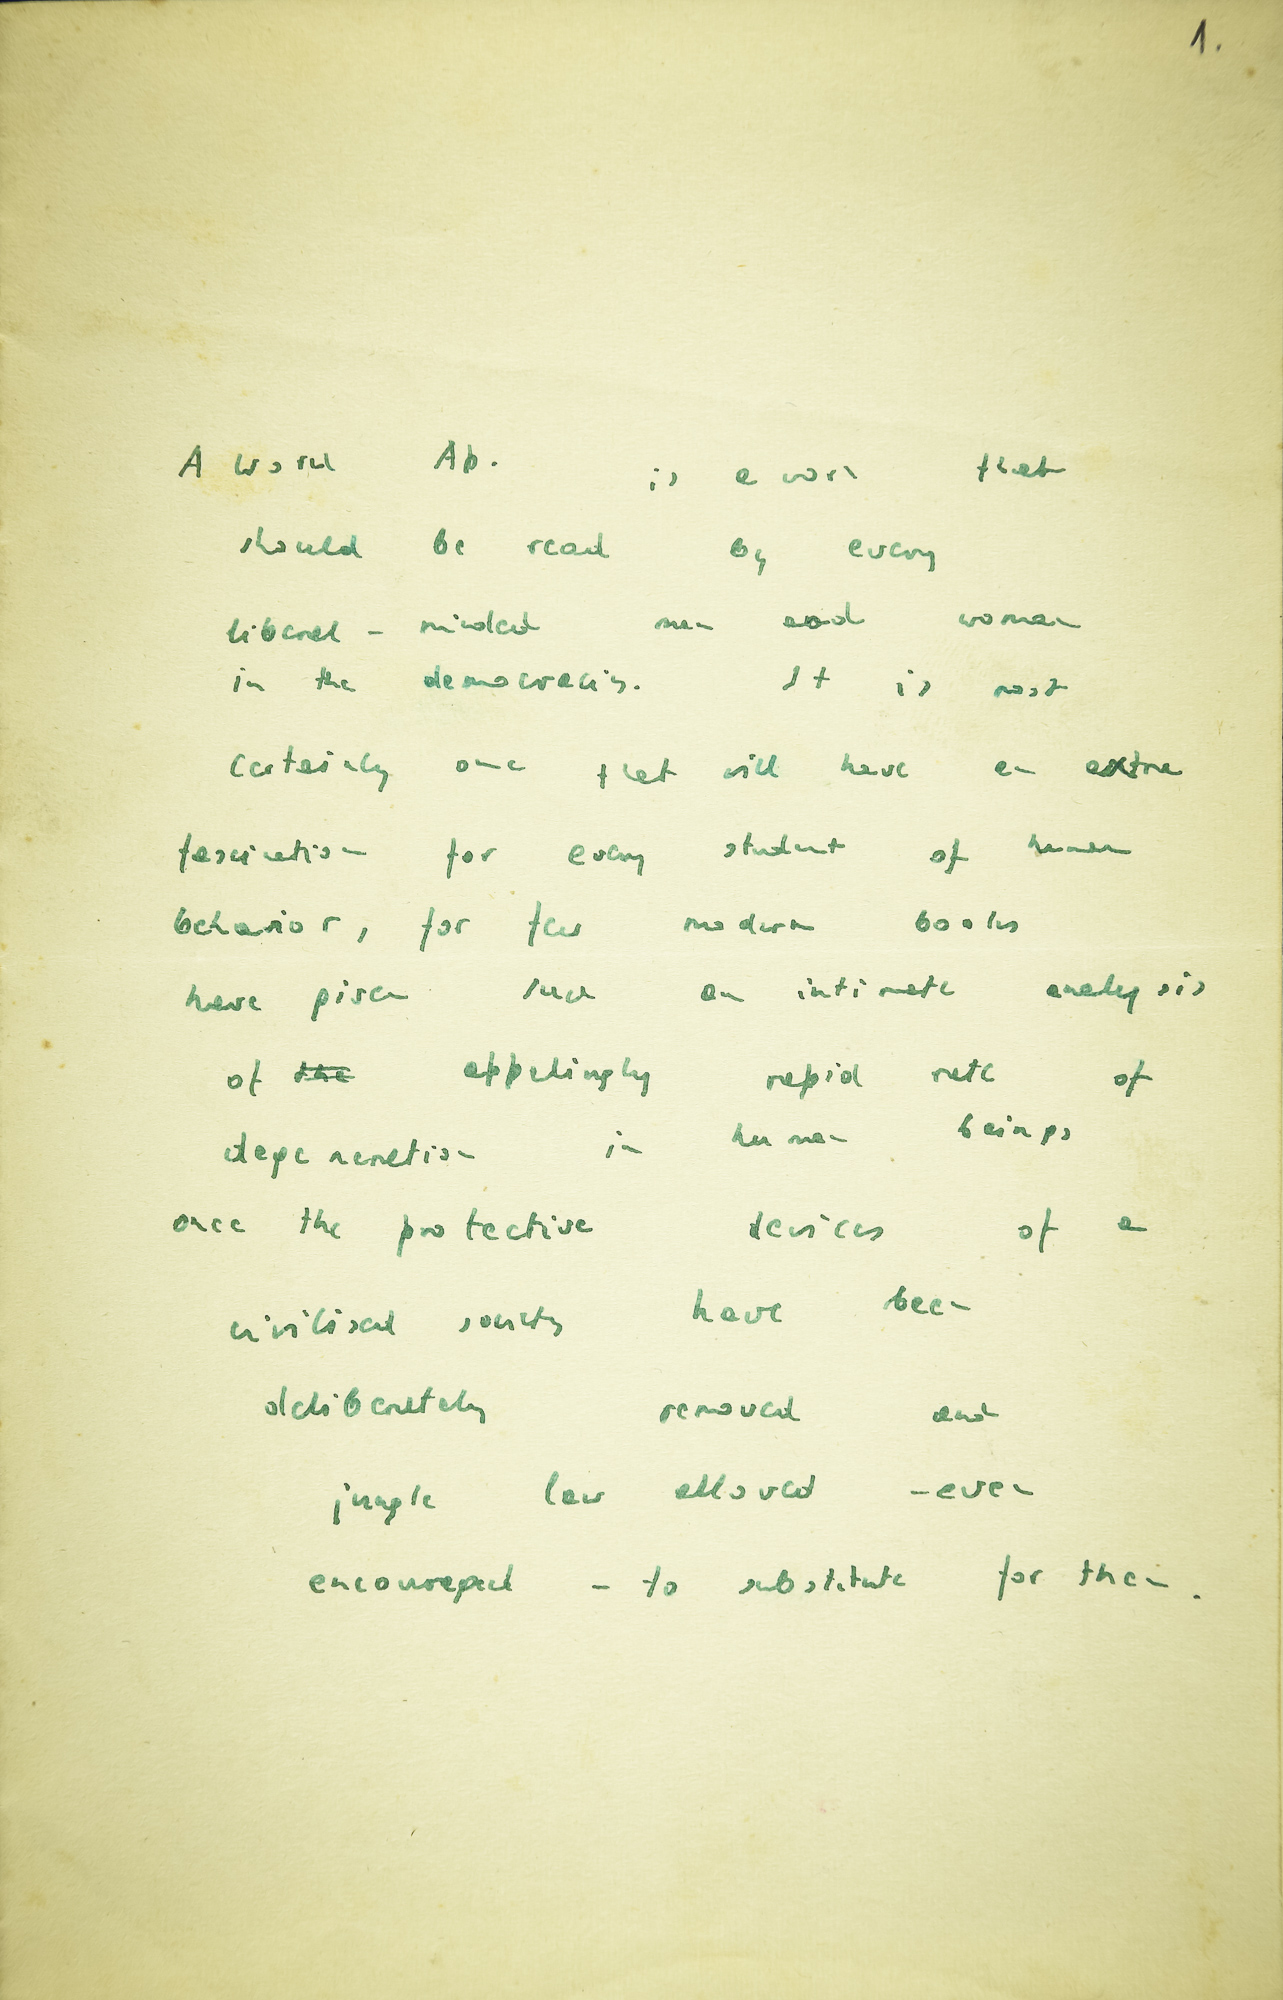 1.
A World Ap. is a work that
should be read by every
liberal - minded men and woman
in the democracies. It is most
certainly one that will have an extra
fascination for every student of human
behavior, for few modern books
have given such an intimate analysis
of the appalingly rapid rate of
degeneration in human beings
once the protective devices of a
civilised society have been
deliberately removed and
jungle law allowed - even
encouraged - to substitute for them.